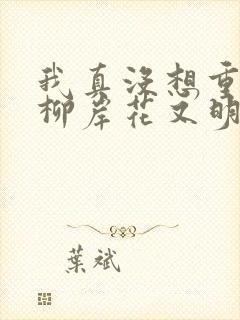 我真没想重
柳岸花又明
葉斌